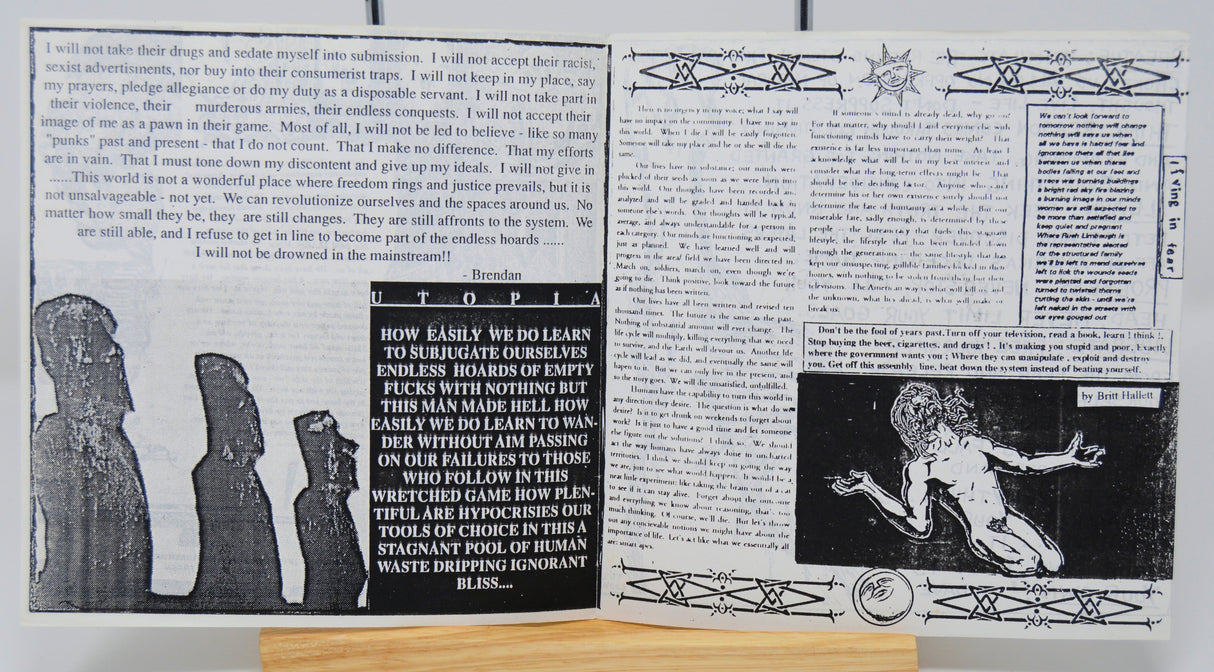 I will not take their drugs and sedate myself into submission. I will not accept their racist,
sexist advertisments, nor buy into their consumerist traps. I will not keep in my place, say
my prayers, pledge allegiance or do my duty as a disposable servant. I will not take part in
their violence, their murderous armies, their endless conquests. I will not accept their
image of me as a pawn in their game. Most of all, I will not be led to believe - like so many
"punks" past and present - that I do not count. That I make no difference. That my efforts
are in vain. That I must tone down my discontent and give up my ideals. I will not give in
......This world is not a wonderful place where freedom rings and justice prevails, but it is
not unsalvageable - not yet. We can revolutionize ourselves and the spaces around us. No
matter how small they be, they are still changes. They are still affronts to the system. We
are still able, and I refuse to get in line to become part of the endless hoards ......
I will not be drowned in the mainstream!!
- Brendan
UTOPIA
HOW EASILY WE DO LEARN
TO SUBJUGATE OURSELVES
ENDLESS HOARDS OF EMPTY
FUCKS WITH NOTHING BUT
THIS MAN MADE HELL HOW
EASILY WE DO LEARN TO WAN-
DER WITHOUT AIM PASSING
ON OUR FAILURES TO THOSE
WHO FOLLOW IN THIS
WRETCHED GAME HOW PLEN-
TIFUL ARE HYPOCRISIES OUR
TOOLS OF CHOICE IN THIS A
STAGNANT POOL OF HUMAN
WASTE DRIPPING IGNORANT
BLISS....
There is no urgency in my voice; what I say will
have no impact on the community. I have no say in
this world. When I die I will be easily forgotten.
Someone will take my place and he or she will die the
same.
Our lives have no substance; our minds were
plucked of their seeds as soon as we were born into
this world. Our thoughts have been recorded and
analyzed and will be graded and handed back in
someone else's words. Our thoughts will be typical,
average, and always understandable for a person in
each category. Our minds are functioning as expected,
just as planned. We have learned well and will
progress in the area/ field we have been directed in.
March on, soldiers, march on, even though we're
going to die. Think positive, look toward the future
as if nothing has been written.
Our lives have all been written and revised ten
thousand times. The future is the same as the past.
Nothing of substantial amount will ever change. The
life cycle will multiply, killing everything that we need
to survive, and the Earth will devour us. Another life
cycle will lead as we did, and eventually the same will
hapen to it. But we can only live in the present, and
so the story goes. We will die unsatisfied, unfulfilled.
Humans have the capability to turn this world in
any direction they desire. The question is what do we
desire? Is it to get drunk on weekends to forget about
work? Is it just to have a good time and let someone
the figure out the solutions? I think so. We should
act the way humans have always done in uncharted
territories. I think we should keep on going the way
we are, just to see what would happen. It would be a
neat little experiment; like taking the brain out of a cat
to see if it can stay alive. Forget about the outcome
and everything we know about reasoning, that's too
much thinking. Of course, we'll die. But let's throw
out any concievable notions we might have about the
importance of life. Let's act like what we essentially all
are: smart apes.
If someone's mind is already dead, why go on?
For that matter, why should I and everyone else with
functioning minds have to carry their weight? That
existence is far less important than mine. At least I
acknowledge what will be in my best interest and
consider what the long-term effects might be. That
should be the deciding factor. Anyone who can't
determine his or her own existence surely should not
determine the fate of humanity as a whole. But our
miserable fate, sadly enough, is determined by these
people - the bureaucracy that fuels this stagnant
lifestyle, the lifestyle that has been handed down
through the generations - the same lifestyle that has
kept our unsuspecting, gullible families locked in their
homes, with nothing to be stolen from them but their
televisions. The American way is what will kill us and
the unknown, what lies ahead, is what will make or
break us.
We can't look forward to
tomorrow nothing will change
nothing will save us when
all we have is hatred fear and
ignorance thats all that lies
between us when theres
bodies falling at our feet and
a race war burning buildings
a bright red sky fire blazing
a burning image in our minds
women are still expected to
be more than satisfied and
keep quiet and pregnant
Where Rush Limbaugh is
the representative elected
for the structured family
we'll be left to mend ourselves
left to lick the wounds seeds
were planted and forgotten
turned to twisted thorns
cutting the skin - until we're
left naked in the streets with
our eyes gouged out
living in fear
Don't be the fool of years past.Turn off your television, read a book, learn ! think !.
Stop buying the beer, cigarettes, and drugs ! . It's making you stupid and poor, Exactly
where the government wants you ; Where they can manipulate , exploit and destroy
you. Get off this assembly line, beat down the system instead of beating yourself.
by Britt Hallett